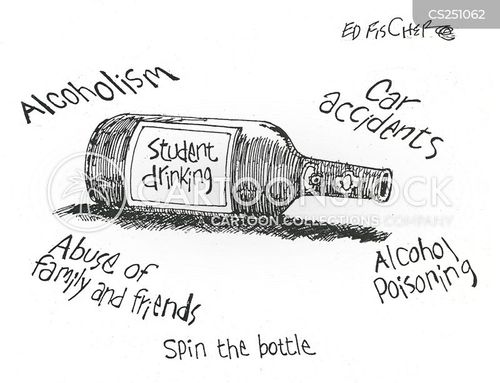 CS251062
ED FISCHER
Alcoholism
Car
accidents
Student
drinking
CARTOONSTOCK
CARTOON COLLECTIONS COMPANY
Abuse of
family and friends
Alcohol
Poisoning
Spin the bottle